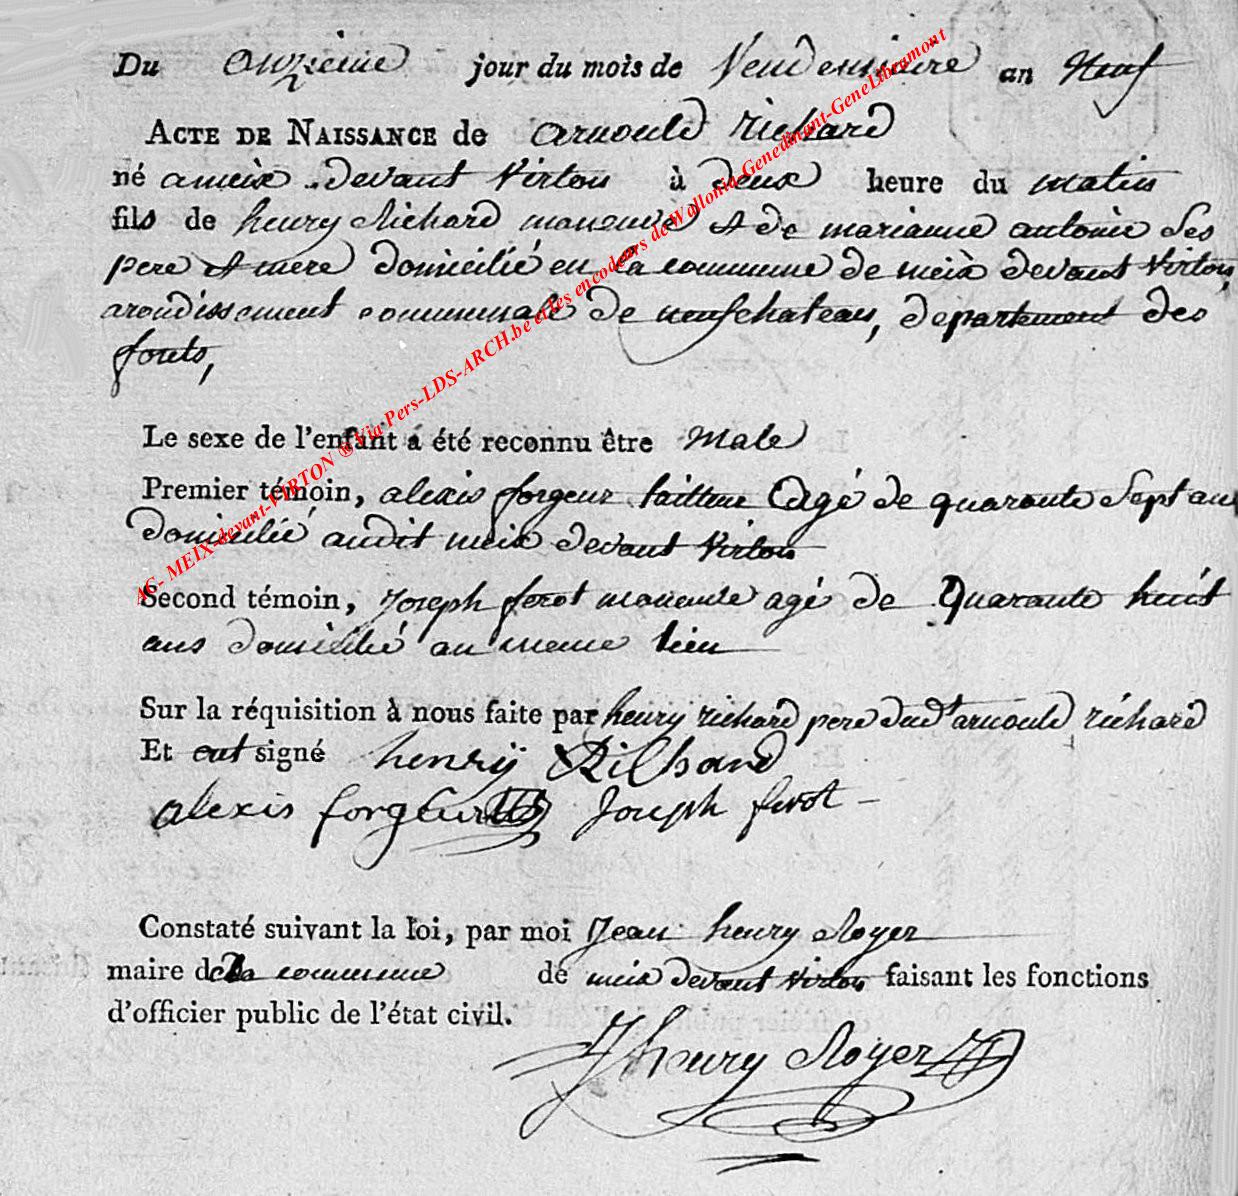 Du onzieme jour du mois de Vendemiaire an Neuf
ACTE DE NAISSANCE de arnould Richard
né a meix devant Virton à deux heure du matin
fils de henry Richard manouvre et de marianne antoine Ses
pere et mere domicilié en la commune de meix devant Virton,
arondissement communale de neufchateau, departement des
forets,
Le sexe de l'enfant a été reconnu être Male
Premier témoin, alexis forgeur tailleur agé de quarante Sept ans
domicilié audit meix devant Virton
Second témoin, Joseph ferot manouvre agé de Quarante huit
ans domicilié au meme lieu
Sur la réquisition à nous faite par henry richard pere dudt arnould richard
Et ont signé henry Richard
alexis forgeur Joseph ferot
Constaté suivant la loi, par moi Jean henry Royer
maire de la commune de meix devant Virton faisant les fonctions
d'officier public de l'état civil.
J henry Royer
AC- MEIX-devant-VIRTON ®Via Pers-LDS-ARCH.be et les encodeurs de Wallonia-Genedinant-GeneLibramont